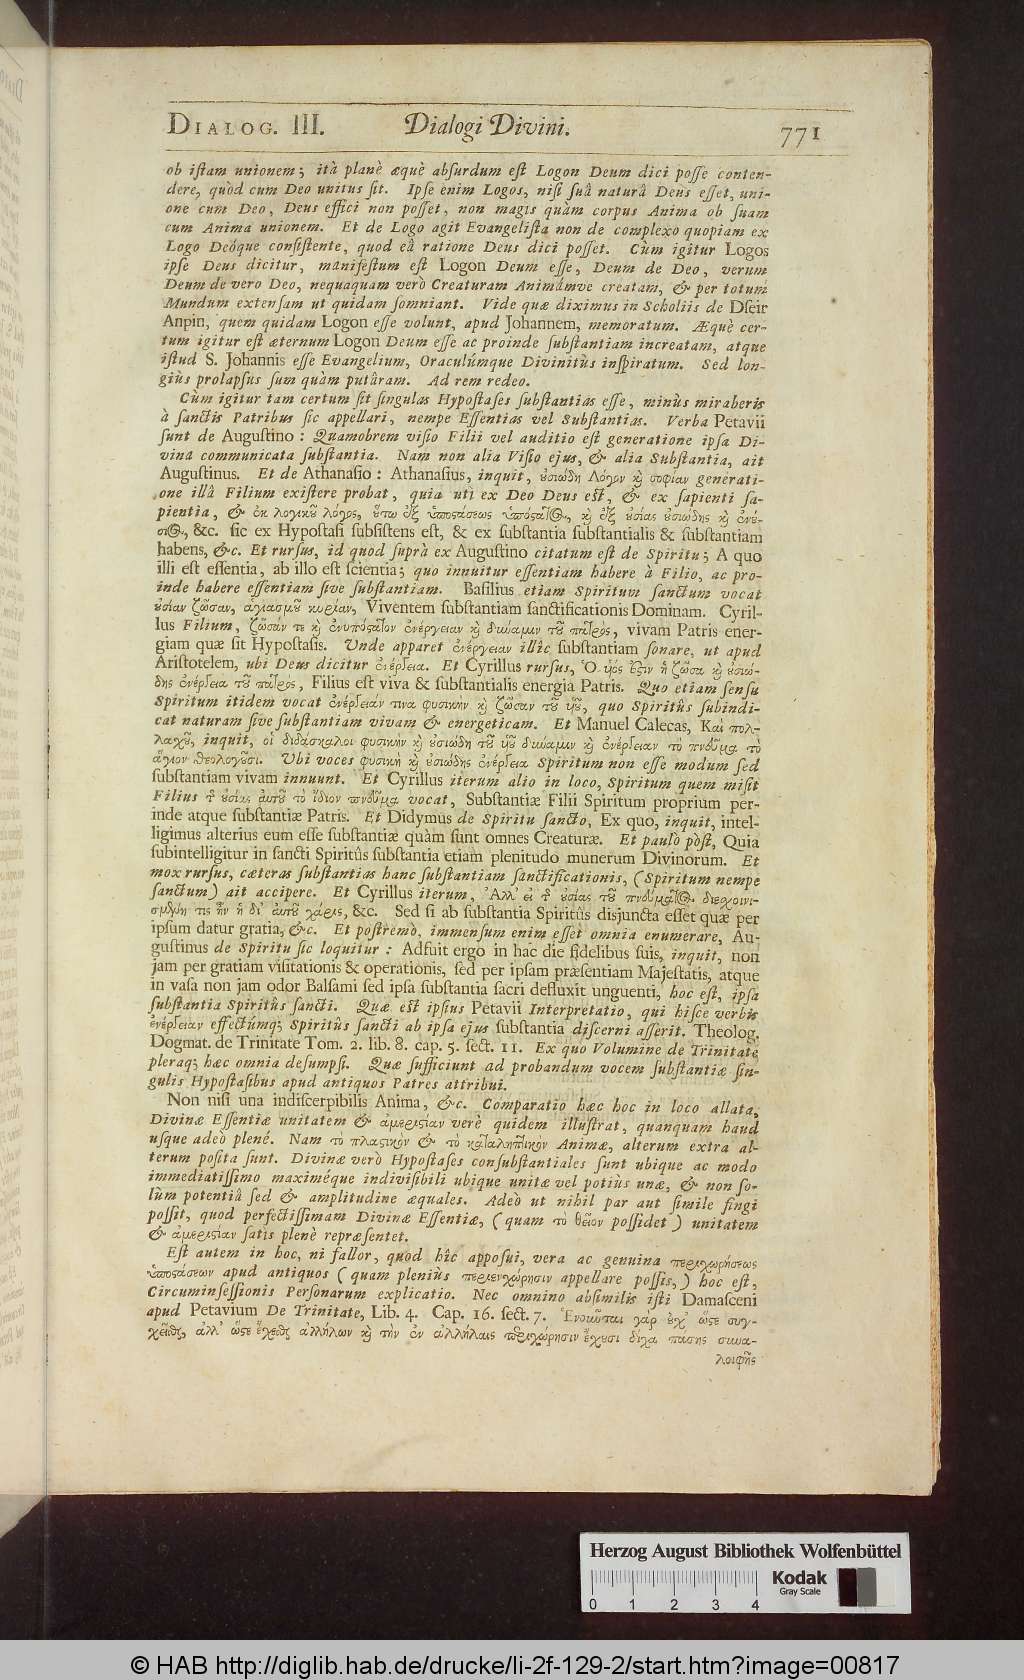 DIALOG. III. Dialogi Divini. 771
ob istam unionem; ità planè æquè absurdum est Logon Deum dici posse conten-
dere, quòd cum Deo unitus sit. Ipse enim Logos, nisi suâ naturâ Deus esset, uni-
one cum Deo, Deus effici non posset, non magis quàm corpus Anima ob suam
cum Anima unionem. Et de Logo agit Evangelista non de complexo quopiam ex
Logo Deóque consistente, quod eâ ratione Deus dici posset. Cùm igitur Logos
ipse Deus dicitur, manifestum est Logon Deum esse, Deum de Deo, verum
Deum de vero Deo, nequaquam verò Creaturam Animámve creatam, & per totum
Mundum extensam ut quidam somniant. Vide quæ diximus in Scholiis de Dseir
Anpin, quem quidam Logon esse volunt, apud Johannem, memoratum. Æquè cer-
tum igitur est æternum Logon Deum esse ac proinde substantiam increatam, atque
istud S. Johannis esse Evangelium, Oraculúmque Divinitùs inspiratum. Sed lon-
giùs prolapsus sum quàm putâram. Ad rem redeo.
Cùm igitur tam certum sit singulas Hypostases substantias esse, minùs miraberis
à sanctis Patribus sic appellari, nempe Essentias vel Substantias. Verba Petavii
sunt de Augustino: Quamobrem visio Filii vel auditio est generatione ipsa Di-
vina communicata substantia. Nam non alia Visio ejus, & alia Substantia, ait
Augustinus. Et de Athanasio: Athanasius, inquit, ὐσιώδη Λόγον κ̀ σοφίαν generati-
one illâ Filium existere probat, quia uti ex Deo Deus est, & ex sapienti sa-
pientia, & ἐκ λογικοῦ λόγος, ὕτω ἐξ ὑποστάσεως ὑπόστατος, κ̀ ἐξ ὐσίας ὐσιώδης κ̀ ἐνύ-
σιος, &c. sic ex Hypostasi subsistens est, & ex substantia substantialis & substantiam
habens, &c. Et rursus, id quod suprà ex Augustino citatum est de Spiritu; A quo
illi est essentia, ab illo est scientia; quo innuitur essentiam habere à Filio, ac pro-
inde habere essentiam sive substantiam. Basilius etiam Spiritum sanctum vocat
ὐσίαν ζῶσαν, ἁγιασμοῦ κυρίαν, Viventem substantiam sanctificationis Dominam. Cyril-
lus Filium, ζῶσάν τε κ̀ ἐνυπόστατον ἐνέργειαν κ̀ δύναμιν τοῦ πατρός, vivam Patris ener-
giam quæ sit Hypostasis. Unde apparet ἐνέργειαν illîc substantiam sonare, ut apud
Aristotelem, ubi Deus dicitur ἐνέργεια. Et Cyrillus rursus, Ὁ υἱός ἐστιν ἡ ζῶσα κ̀ ὐσιώ-
δης ἐνέργεια τοῦ πατρός, Filius est viva & substantialis energia Patris. Quo etiam sensu
Spiritum itidem vocat ἐνέργειάν τινα φυσικὴν κ̀ ζῶσαν τοῦ υἱοῦ, quo Spiritûs subindi-
cat naturam sive substantiam vivam & energeticam. Et Manuel Calecas, Καὶ πολ-
λαχοῦ, inquit, οἱ διδάσκαλοι φυσικὴν κ̀ ὐσιώδη τοῦ υἱοῦ δύναμιν κ̀ ἐνέργειαν τὸ πνεῦμα τὸ
ἅγιον θεολογοῦσι. Ubi voces φυσικὴ κ̀ ὐσιώδης ἐνέργεια Spiritum non esse modum sed
substantiam vivam innuunt. Et Cyrillus iterum alio in loco, Spiritum quem misit
Filius τῆς ὐσίας αὐτοῦ τὸ ἴδιον πνεῦμα vocat, Substantiæ Filii Spiritum proprium per-
inde atque substantiæ Patris. Et Didymus de Spiritu sancto, Ex quo, inquit, intel-
ligimus alterius eum esse substantiæ quàm sunt omnes Creaturæ. Et paulò pòst, Quia
subintelligitur in sancti Spiritûs substantia etiam plenitudo munerum Divinorum. Et
mox rursus, cæteras substantias hanc substantiam sanctificationis, (Spiritum nempe
sanctum) ait accipere. Et Cyrillus iterum, Ἀλλ' εἰ τῆς ὐσίας τοῦ πνεύματος διεσχοινι-
σμένη τις ἦν ἡ δι' αὐτοῦ χάρις, &c. Sed si ab substantia Spiritûs disjuncta esset quæ per
ipsum datur gratia, &c. Et postremò, immensum enim esset omnia enumerare, Au-
gustinus de Spiritu sic loquitur: Adfuit ergo in hac die fidelibus suis, inquit, non
jam per gratiam visitationis & operationis, sed per ipsam præsentiam Majestatis, atque
in vasa non jam odor Balsami sed ipsa substantia sacri defluxit unguenti, hoc est, ipsa
substantia Spiritûs sancti. Quæ est ipsius Petavii Interpretatio, qui hisce verbis
ἐνέργειαν effectúmq; Spiritûs sancti ab ipsa ejus substantia discerni asserit. Theolog.
Dogmat. de Trinitate Tom. 2. lib. 8. cap. 5. sect. 11. Ex quo Volumine de Trinitate
pleraq; hæc omnia desumpsi. Quæ sufficiunt ad probandum vocem substantiæ sin-
gulis Hypostasibus apud antiquos Patres attribui.
Non nisi una indiscerpibilis Anima, &c. Comparatio hæc hoc in loco allata,
Divinæ Essentiæ unitatem & ἀμερισίαν verè quidem illustrat, quanquam haud
usque adeò plenè. Nam τὸ πλαστικόν & τὸ καταληπτικόν Animæ, alterum extra al-
terum posita sunt. Divinæ verò Hypostases consubstantiales sunt ubique ac modo
immediatissimo maximéque indivisibili ubique unitæ vel potiùs unæ, & non so-
lùm potentiâ sed & amplitudine æquales. Adeò ut nihil par aut simile fingi
possit, quod perfectissimam Divinæ Essentiæ, (quam τὸ θεῖον possidet) unitatem
& ἀμερισίαν satis plenè repræsentet.
Est autem in hoc, ni fallor, quòd hîc apposui, vera ac genuina περιχωρήσεως
ὑποστάσεων apud antiquos (quam pleniùs περιεγχώρησιν appellare possis,) hoc est,
Circuminsessionis Personarum explicatio. Nec omnino absimilis isti Damasceni
apud Petavium De Trinitate, Lib. 4. Cap. 16. sect. 7. Ἑνοῦνται γὰρ ὐχ' ὥστε συγ-
χεῖσθαι, ἀλλ' ὥστε ἔχεσθαι ἀλλήλων κ̀ τὴν ἐν ἀλλήλαις περιχώρησιν ἔχυσι δίχα πάσης συνα-
λοιφῆς
Herzog August Bibliothek Wolfenbüttel
Kodak
Gray Scale
0 1 2 3 4
© HAB http://diglib.hab.de/drucke/li-2f-129-2/start.htm?image=00817